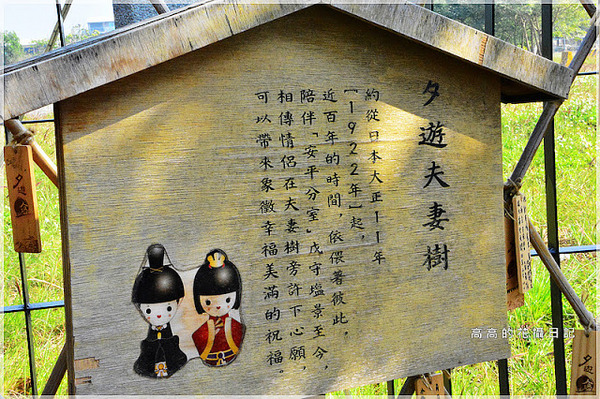 夕遊夫妻樹
約從日本大正11年
〔1922年〕起，
近百年的時間，依偎著彼此，
陪伴「安平分室」戍守塩景至今，
相傳情侶在夫妻樹旁許下心願，
可以帶來象徵幸福美滿的祝福。
夕遊
高高的絕攝日記
夕遊